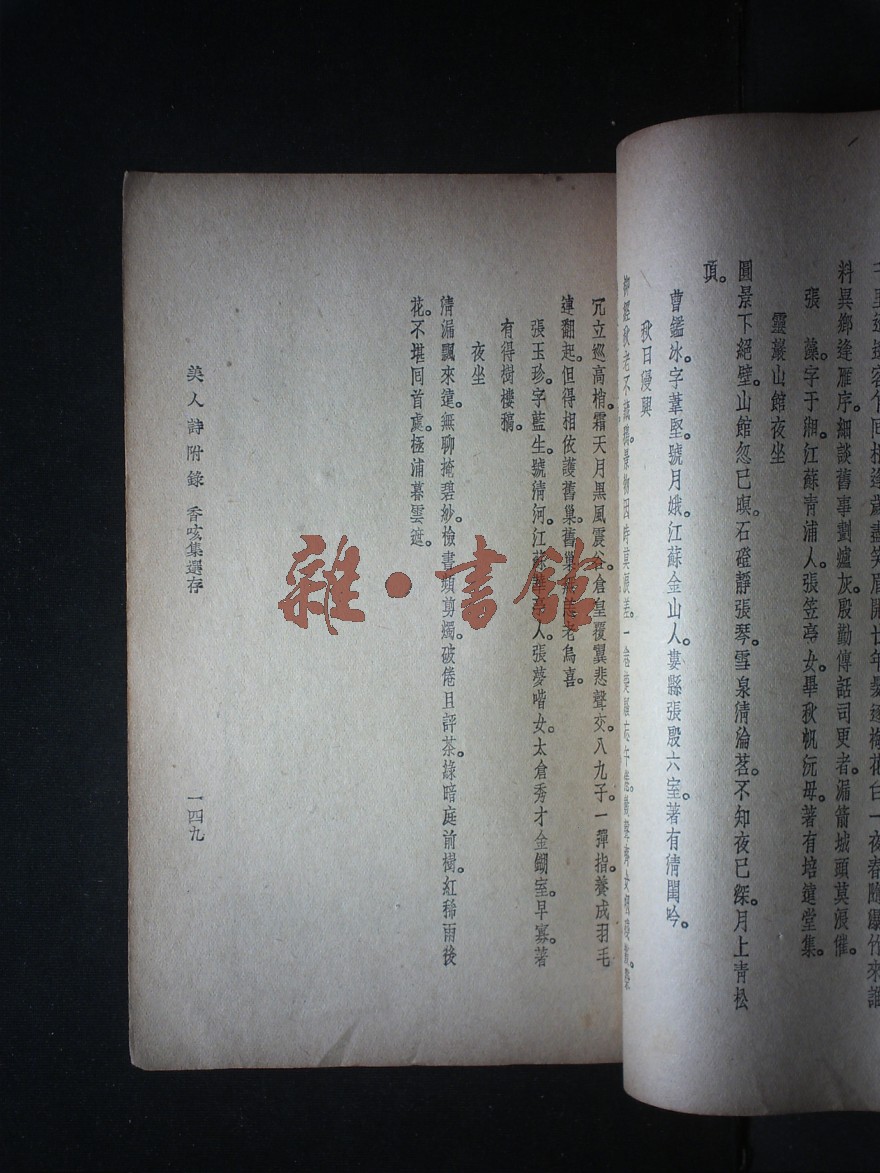 料異鄉逢雁序。細談舊事劃爐灰。殷勤傳話司更者。漏箭城頭莫漫催。
張　藻。字于湘。江蘇青浦人。張笠亭女。畢秋帆沅母。著有培遠堂集。
靈巖山館夜坐
圓景下絕壁。山館忽已暝。石磴靜張琴。雪泉清瀹茗。不知夜已深。月上青松
頂。
曹鑑冰。字葦堅。號月娥。江蘇金山人。婁縣張殷六室。著有清閨吟。
秋日漫興
冗立巡高棺。霜天月黑風震谷。倉皇覆翼悲聲交。八九子一彈指。養成羽毛
連翻起。但得相依護舊巢。舊巢 老烏喜。
張玉珍。字藍生。號清河。江蘇華亭人。張夢喈女。太倉秀才金鋤室。早寡。著
有得樹樓稿。
夜坐
清漏飄來遠。無聊掩碧紗。檢書頻剪燭。破倦且評茶。綠暗庭前樹。紅稀雨後
花。不堪回首處。極浦暮雲遮。
美人詩附錄　香咳集選存
一四九
雜·書館